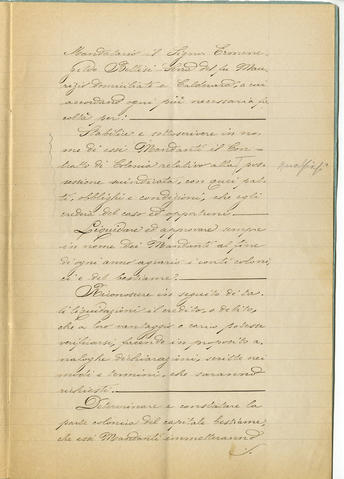 Mandatario il Signor Ermene-
gildo Bellisi fu del fu Mau-
rizio domiciliato a Caldenard, a cui
accordano ogni più necessaria fa
coltà per:
Stabilire e sottoscrivere in no-
me di essi Mandanti il Con-
tratto di Colonia relativo alla pos-
sessione suindicata, con quei pat-
ti, obblighi e condizioni, che egli
crederà del caso ed opportuni.
Liquidare ed approvare sempre
in nome dei Mandanti al fine
di ogni anno agrario i conti coloni-
ci e del bestiame;
Riconoscere in seguito di ta-
li liquidazioni il credito, o debito,
che a loro vantaggio o carico potesse
verificarsi, facendo in proposito a-
naloghe dichiarazioni, scritte nei
modi e termini, che saranno
richiesti.
Determinare e constatare la
parte colonica del capitale bestiame,
che essi Mandanti immetteranno